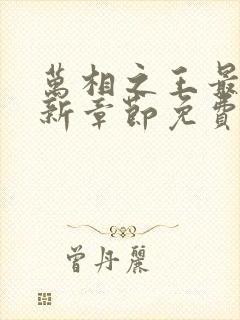 萬相之王最
新章節免費
曾丹麗